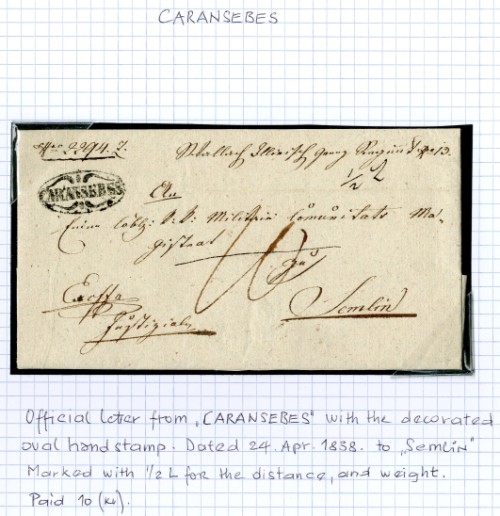 CARANSEBES
Nro 2294. J.
Wallach Illirisch Nro 13.
1/2 L
CARANSEBES
An
Eine löbl: k: k: Militair Comunitats Ma-
gistrat
zu
10
Exoffo
Semlin
Justiziale
Official letter from „CARANSEBES" with the decorated
oval handstamp. Dated 24. Apr. 1838. to „Semlin"
Marked with 1/2 L for the distance, and weight.
Paid 10 (kr).